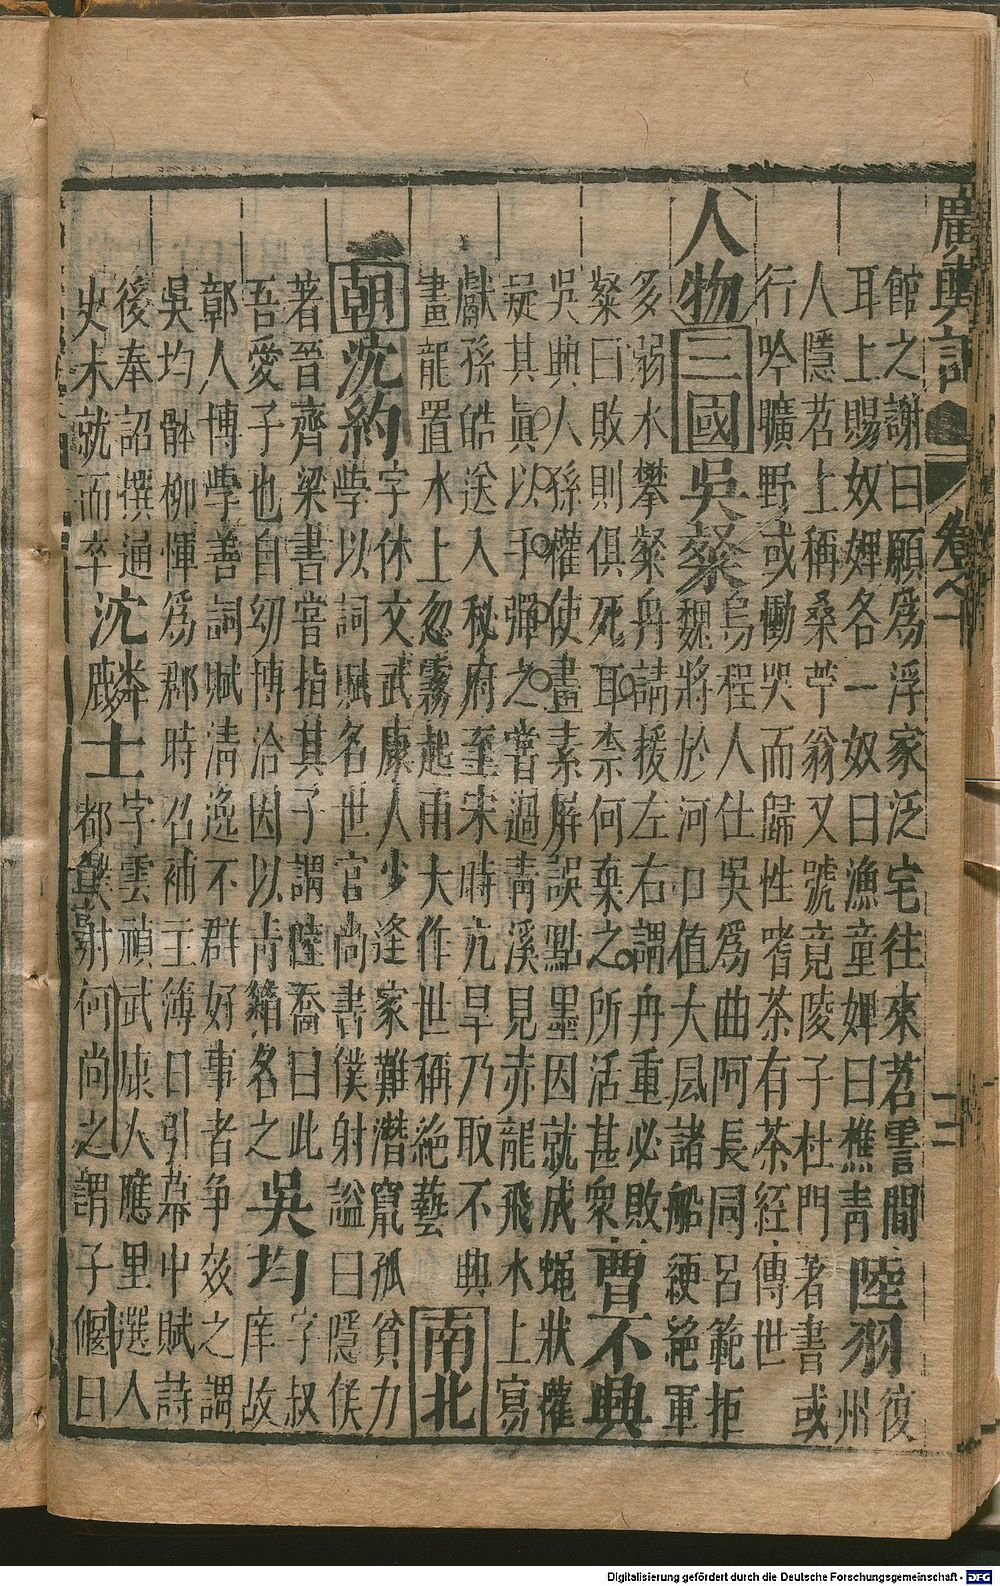 廣輿記 卷之十 十二
館之謝曰願爲浮家泛宅往來苕霅間
耳上賜奴婢各一奴曰漁童婢曰樵青
陸羽
復
州
人隱苕上稱桑苧翁又號竟陵子杜門著書或
行吟曠野或慟哭而歸性嗜茶有茶經傳世
人物 三國 吳粲
烏程人仕吳爲曲阿長同呂範拒
魏將於河口值大風諸船綆絕軍
多弱水攀粲舟請援左右謂舟重必敗
粲曰敗則俱死耳柰何棄之所活甚衆
曹不興
吳興人孫權使畫素屏誤點墨因就成蠅狀權
疑其眞以手彈之嘗過青溪見赤龍飛水上寫
獻孫皓送入秘府至宋時亢旱乃取不興
畫龍置水上忽霧起雨大作世稱絕藝
南北
朝 沈約
字休文武康人少逢家難潛竄孤貧力
學以詞賦名世官尚書僕射謚曰隱侯
著晉齊梁書嘗指其子謂陸喬曰此
吾愛子也自幼博洽因以青箱名之
吳均
字叔
庠故
鄣人博學善詞賦清逸不群好事者爭效之謂
吳均體柳惲爲郡時召補主簿日引幕中賦詩
後奉詔撰通
史未就而卒
沈麟士
字雲禎武康人應里選入
都僕射何尚之謂子偃曰
Digitalisierung gefördert durch die Deutsche Forschungsgemeinschaft - DFG